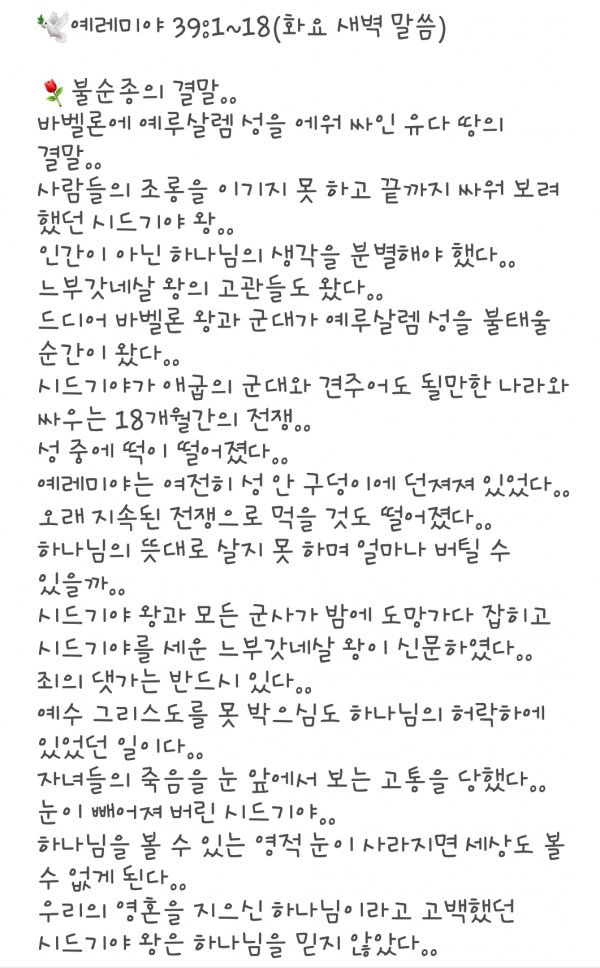 🕊예레미야 39:1~18(화요 새벽 말씀)
🌹불순종의 결말..
바벨론에 예루살렘 성을 에워 싸인 유다 땅의
결말..
사람들의 조롱을 이기지 못 하고 끝까지 싸워 보려
했던 시드기야 왕..
인간이 아닌 하나님의 생각을 분별해야 했다..
느부갓네살 왕의 고관들도 왔다..
드디어 바벨론 왕과 군대가 예루살렘 성을 불태울
순간이 왔다..
시드기야가 애굽의 군대와 견주어도 될만한 나라와
싸우는 18개월간의 전쟁..
성 중에 떡이 떨어졌다..
예레미야는 여전히 성 안 구덩이에 던져져 있었다..
오래 지속된 전쟁으로 먹을 것도 떨어졌다..
하나님의 뜻대로 살지 못 하며 얼마나 버틸 수
있을까..
시드기야 왕과 모든 군사가 밤에 도망가다 잡히고
시드기야를 세운 느부갓네살 왕이 신문하였다..
죄의 댓가는 반드시 있다..
예수 그리스도를 못 박으심도 하나님의 허락하에
있었던 일이다..
자녀들의 죽음을 눈 앞에서 보는 고통을 당했다..
눈이 빼어져 버린 시드기야..
하나님을 볼 수 있는 영적 눈이 사라지면 세상도 볼
수 없게 된다..
우리의 영혼을 지으신 하나님이라고 고백했던
시드기야 왕은 하나님을 믿지 않았다..